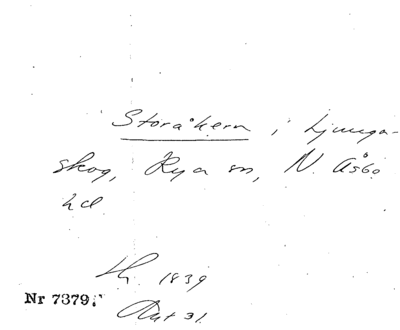 Storåkern i Ljunga-
skog, Rya sn, N. Åsbo
hd.
lh. 1839
Nr 7379.
Akt 31.